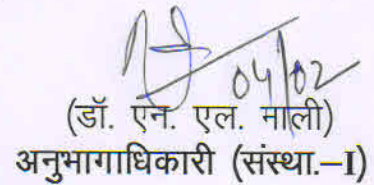 04/02
(डॉ. एन. एल. माली)
अनुभागाधिकारी (संस्था.–I)